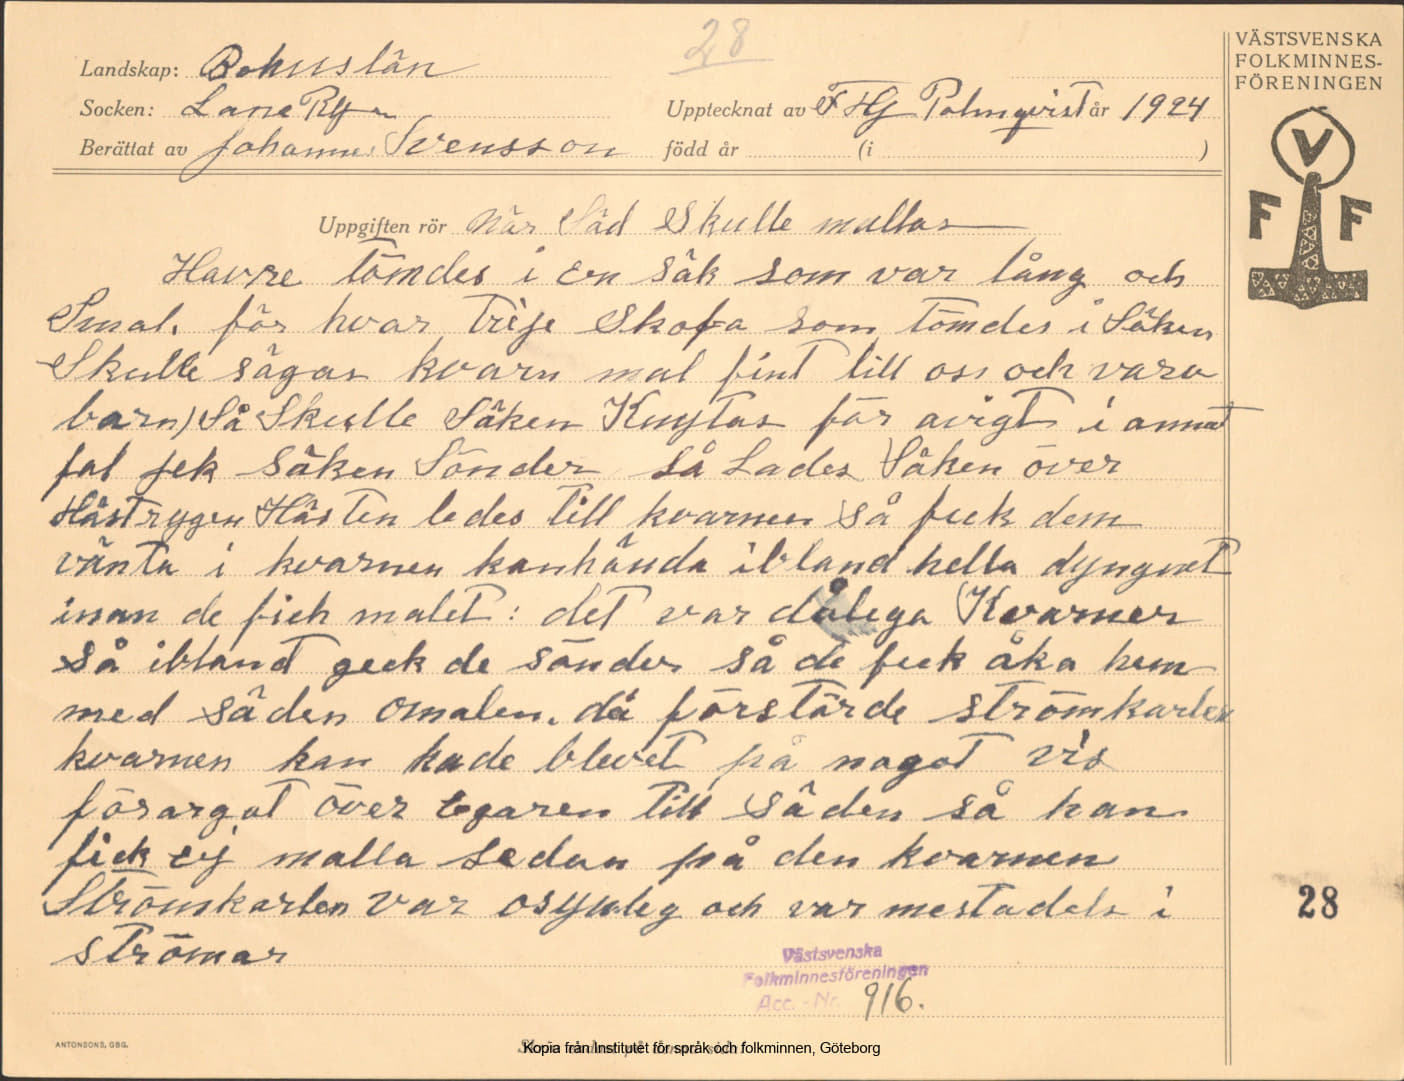 28
VÄSTSVENSKA
FOLKMINNES-
FÖRENINGEN
V
F F
Landskap: Bohuslän
Socken: Lane Ryr
Upptecknat av F Hj Palmqvist år 1924
Berättat av Johannes Svensson född år (i )
Uppgiften rör När Säd Skulle mallas
Havre tömdes i en säk som var lång och
Smal. för hvar treje Skofa som tömdes i Säken
Skulle sägas kvarn mal fint till oss och vara
barn) Så Skulle Säken Knytas för avigt i annat
fal fek säken Sönder så Lades Säken över
Hästrygen Hästen ledes till kvarnen så feck dem
vänta i kvarnen kanhända ibland hella dyngnet
inan de fich malet : det var dålega Kvarner
så ibland geck de sönder så de feck åka hem
med säden omalen. då förstörde strömkarlen
kvarnen han hade blevet på nagot vis
förargat över Egaren till säden så han
fick ej malla sedan på den kvarnen
Strömkarlen var osynleg och var mestadels i
strömar
Västsvenska
Folkminnesföreningen
Acc. - Nr. 916.
28
ANTONSONS, GBG.
Kopia från Institutet för språk och folkminnen, Göteborg